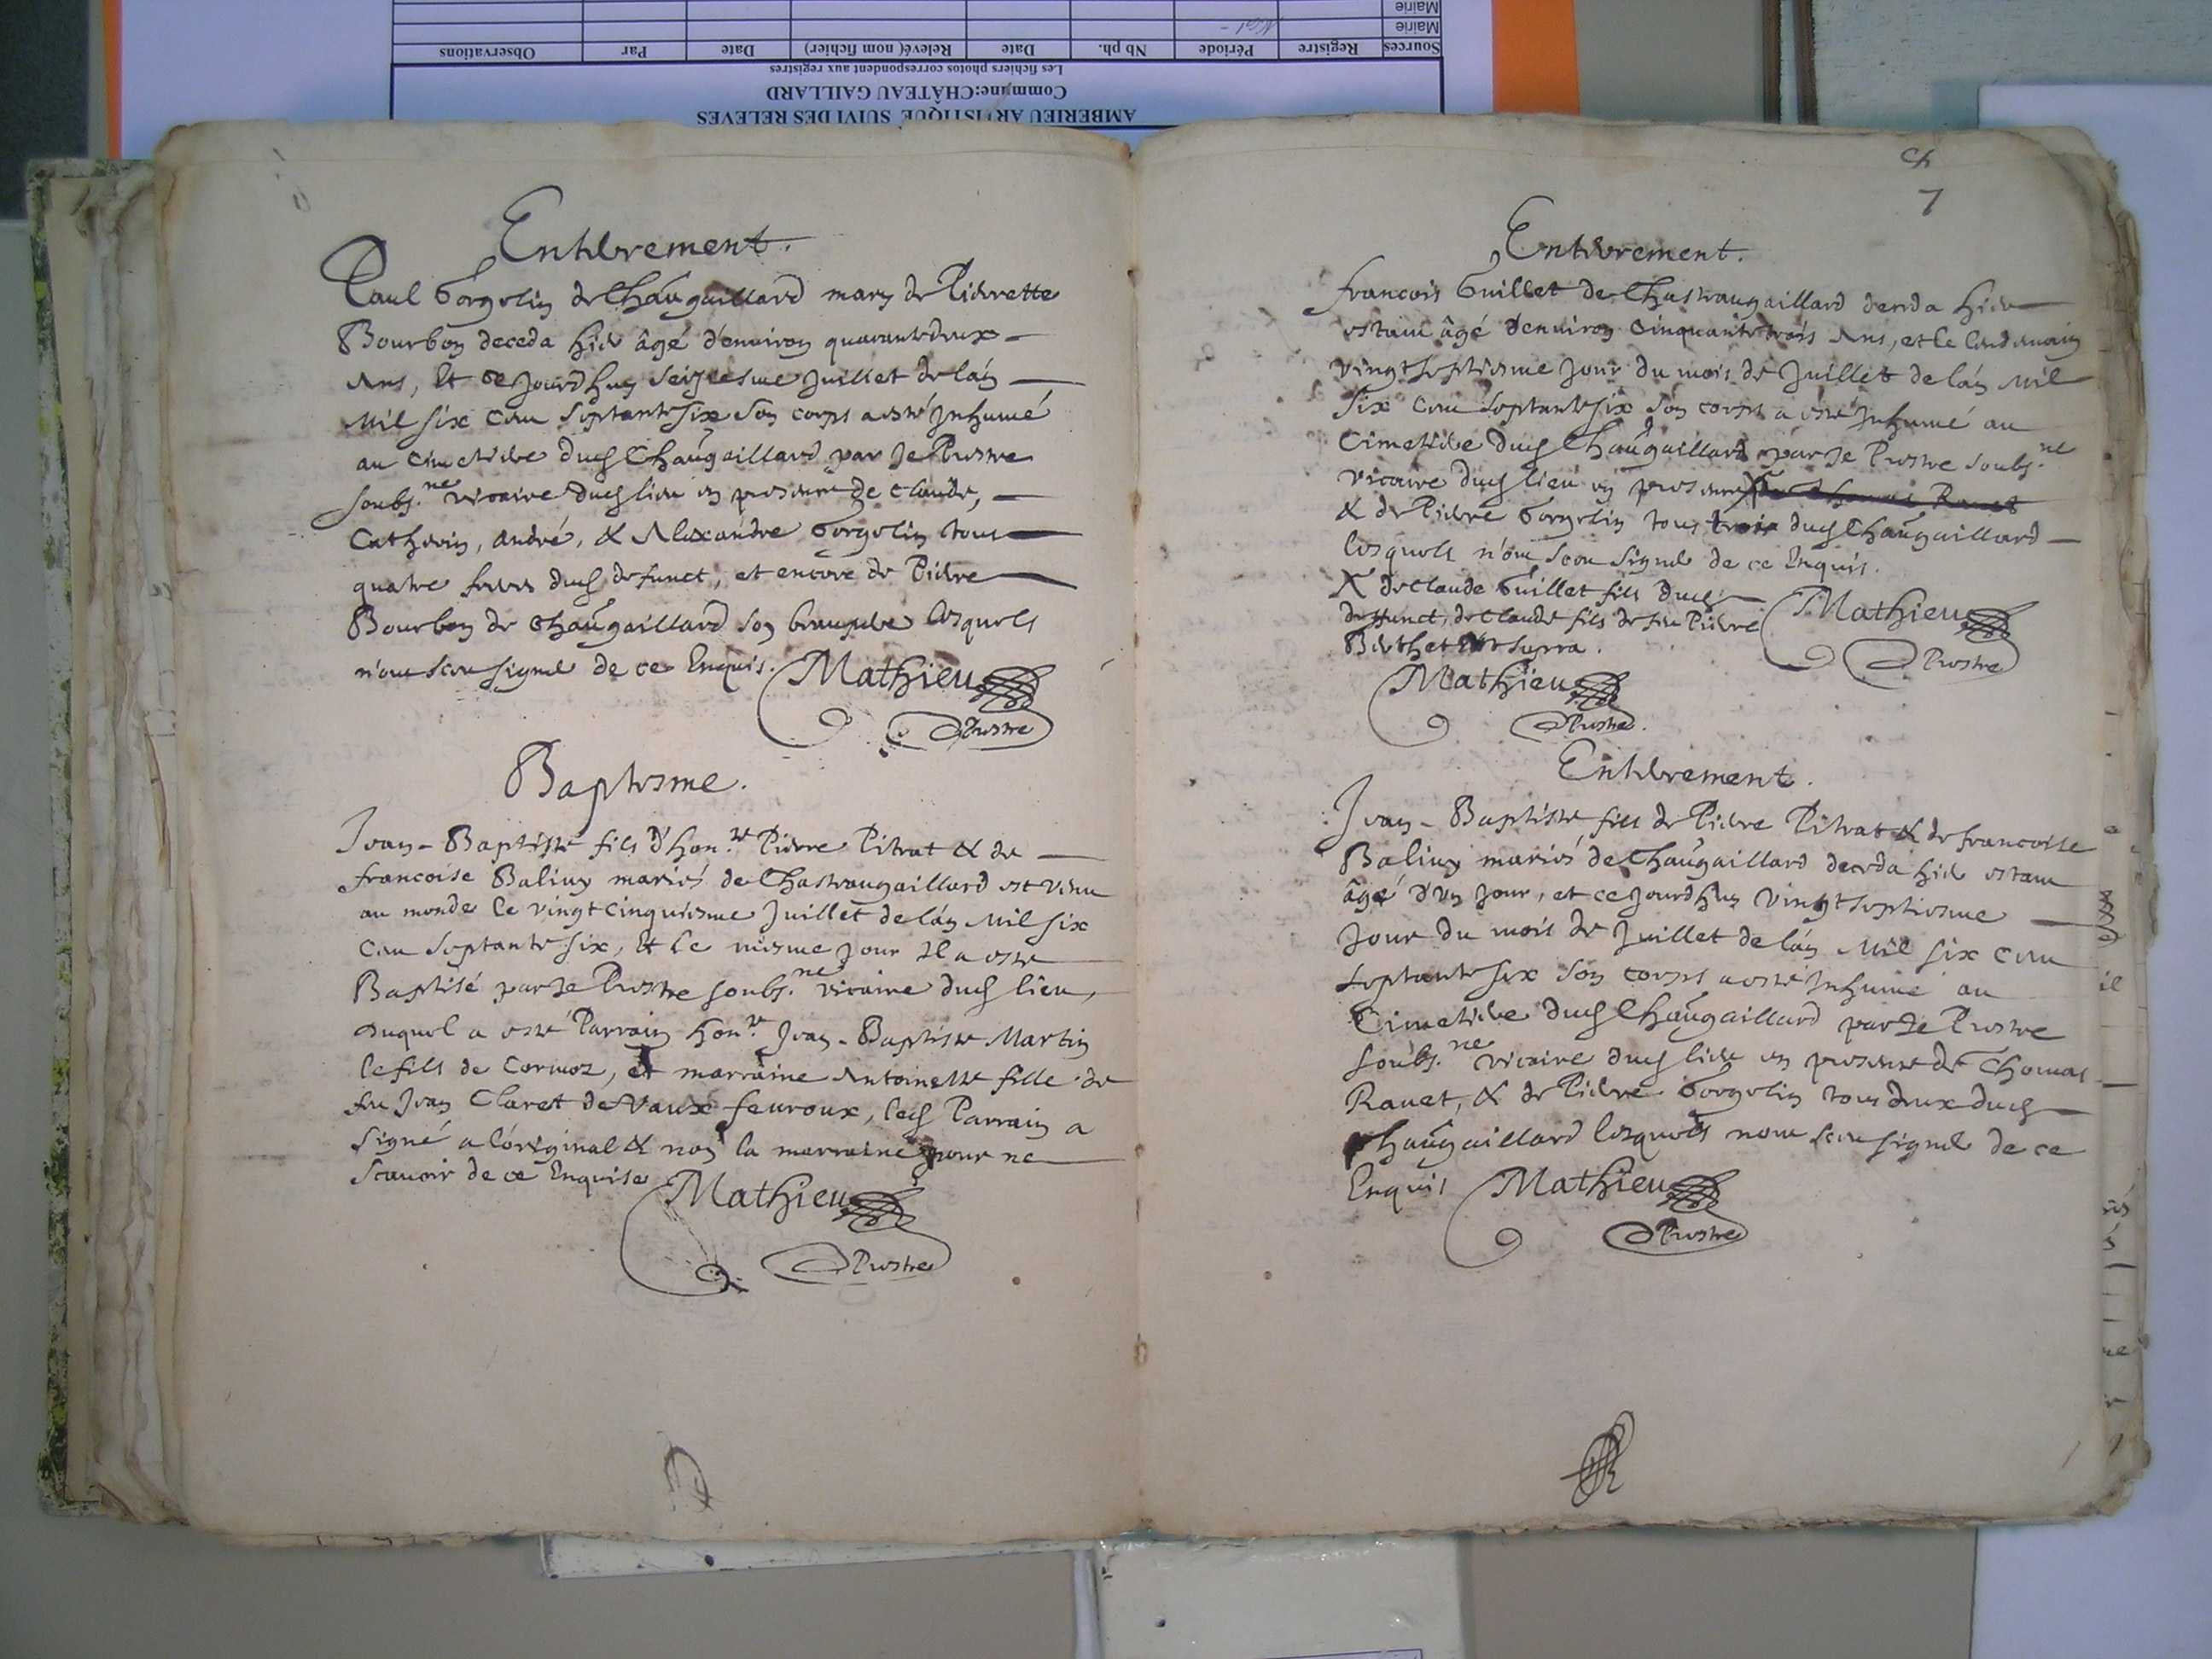 Mairie
Mairie
Sources Registre Période Nb ph. Date Relevé( nom fichier) Date Par Observations
Les fichiers photos correspondent aux registres
Commune:CHÂTEAU GAILLARD
AMBERIEU ARTISTIQUE SUIVI DES RELEVES
Enterrement.
Paul Gorgelin de Chaũgaillard mary de Pierrette
Bourbon deceda hier âgé d'environ quarante deux
Ans, Et ce Jourdhuy seiziesme Juillet de l'án
Mil six cent septante six son corps a esté Inhumé
au cimetiere dud Chaũgaillard par Je Prestre
soubs.né vicaire dud lieu en presence de Claude,
Catherin, André, & Alexandre Gorgelin tous
quatre freres dud defunct, et encore de Pierre
Bourbon de Chaũgaillard son beaupere lesquels
n'ont sceu signer de ce Enquis. Mathieu
Prestre
Baptesme.
Jean-Baptiste fils d'hon.te Pierre Pitrat & de
francoise Balivy mariés de Chasteaugaillard est venu
au monde le vingtcinquiesme Juillet de l'án Mil six
cent septante six, Et le mesme Jour Il a esté
Baptisé par Je Prestre soubs.né vicaire dud lieu,
duquel a esté Parrain hon.te Jean-Baptiste Martin
le fils de Cormoz, et marraine Antoinette fille de
feu Jean Claret de Vaux fevroux, led Parrain a
signé a l'original & non la marraine pour ne
scavoir de ce Enquise Mathieu
Prestre
Ch
7
Enterrement.
francois Guillet de Chasteaugaillard deceda hier
estant âgé d'environ cinquante trois Ans, et le lendemain
vingtseptiesme Jour du mois de Juillet de l'án Mil
six cent septante six son corps a esté Inhumé au
Cimetiere dud Chaũgaillard par Je Prestre soubs.né
vicaire dud lieu en presence X de Thomas Ravet
& de Pierre Gorgelin tous trois dud Chaũgaillard
lesquels n'ont sceu signer de ce Enquis.
X de Claude Guillet fils dud
deffunct, de Claude fils de feu Pierre Mathieu
Berthet Vt supra. Prestre
Mathieu
Prestre.
Enterrement.
Jean-Baptiste fils de Pierre Pitrat & de francoise
Balivy mariés de Chaũgaillard deceda hier estant
âgé d'un Jour, et ce Jourdhuy vingtseptiesme
Jour du mois de Juillet de l'án Mil six cent
septante six son corps a esté Inhumé au
Cimetiere dud Chaũgaillard par Je Prestre
soubs.né vicaire dud lieu en presence de Thomas
Ravet, & de Pierre Gorgelin tous deux dud
Chaũgaillard lesquels nont sceu signer de ce
Enquis Mathieu
Prestre